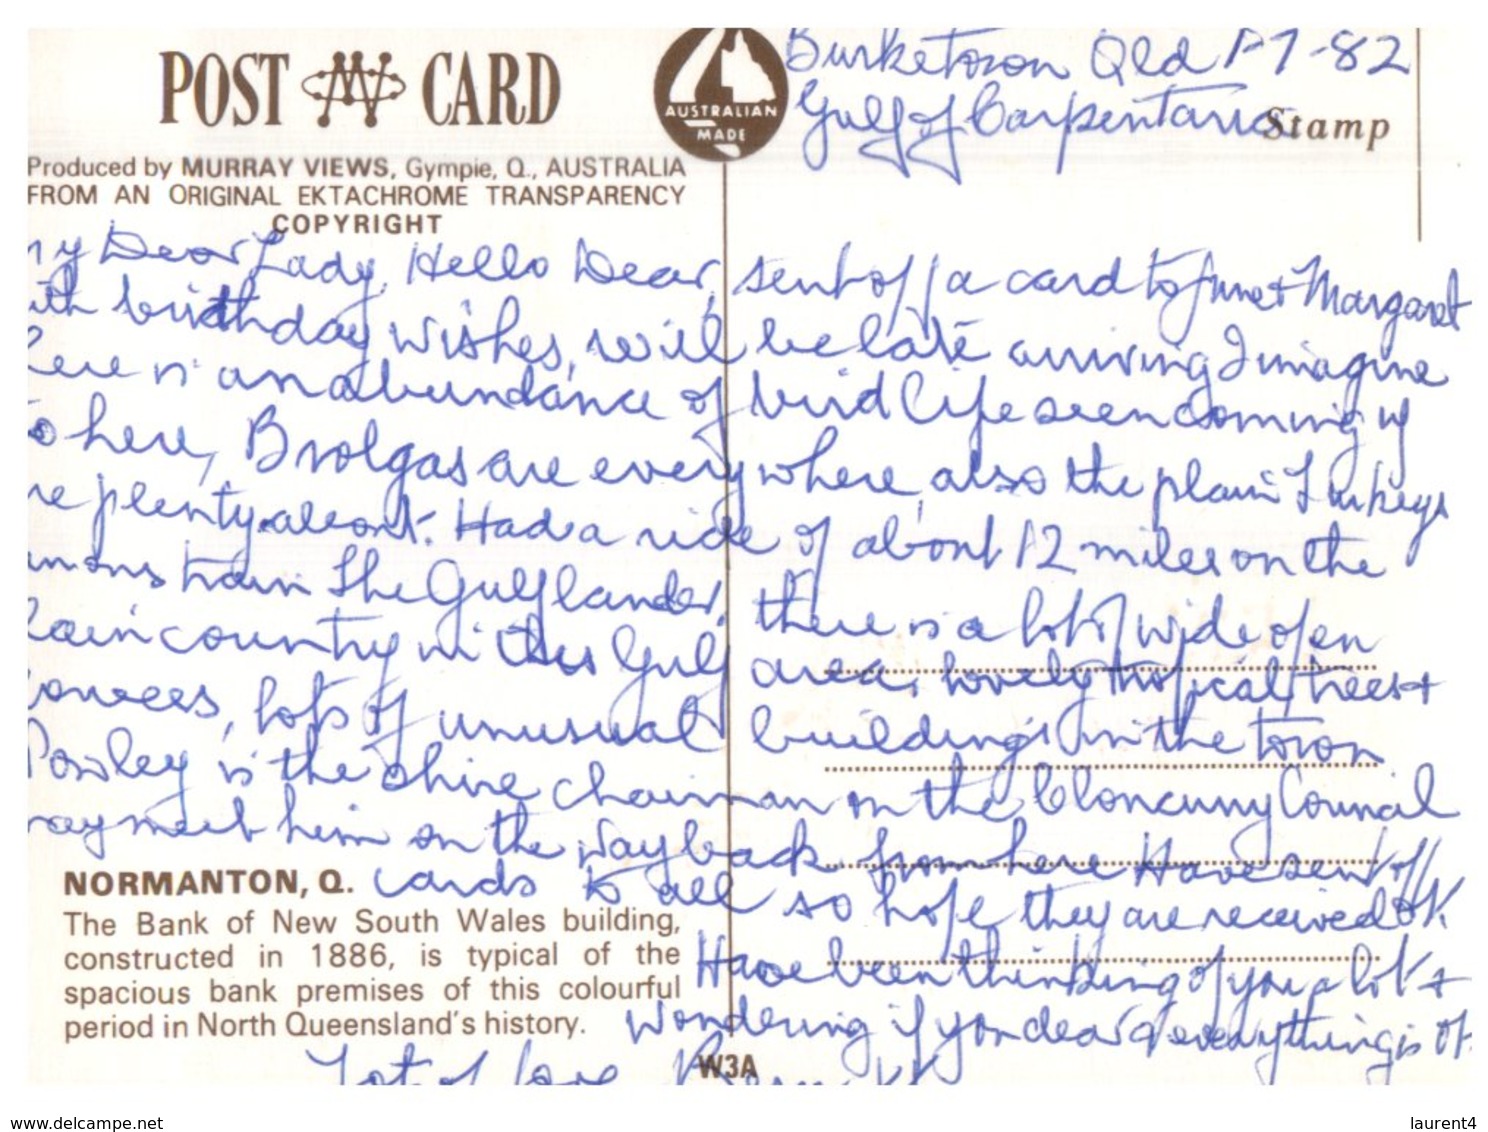 POST CARD
AUSTRALIAN
MADE
Burketown Qld 1-7-82
Gulf of Carpentaria
Stamp
Produced by MURRAY VIEWS, Gympie, Q., AUSTRALIA
FROM AN ORIGINAL EKTACHROME TRANSPARENCY
COPYRIGHT
my Dear Lady, Hello Dear, sent off a card to June + Margaret
ith birthday wishes, will be late arriving I imagine
here is an abundance of bird life seen coming up
to here, Brolgas are everywhere, also the plain Turkeys
re plenty about. Had a ride of about 12 miles on the
train The Gulflander, there is a lot of wide open
lain country in this Gulf area, lovely tropical trees +
lowers, lots of unusual buildings in the town
Powley is the shire chairman on the Cloncurry Council
may meet him on the way back from here Have sent off
cards to all so hope they are received OK.
Have been thinking of you a lot +
wondering if you dear & everything is OK.
Lot of love
NORMANTON, Q.
The Bank of New South Wales building,
constructed in 1886, is typical of the
spacious bank premises of this colourful
period in North Queensland's history.
W3A
www.delcampe.net
laurent4